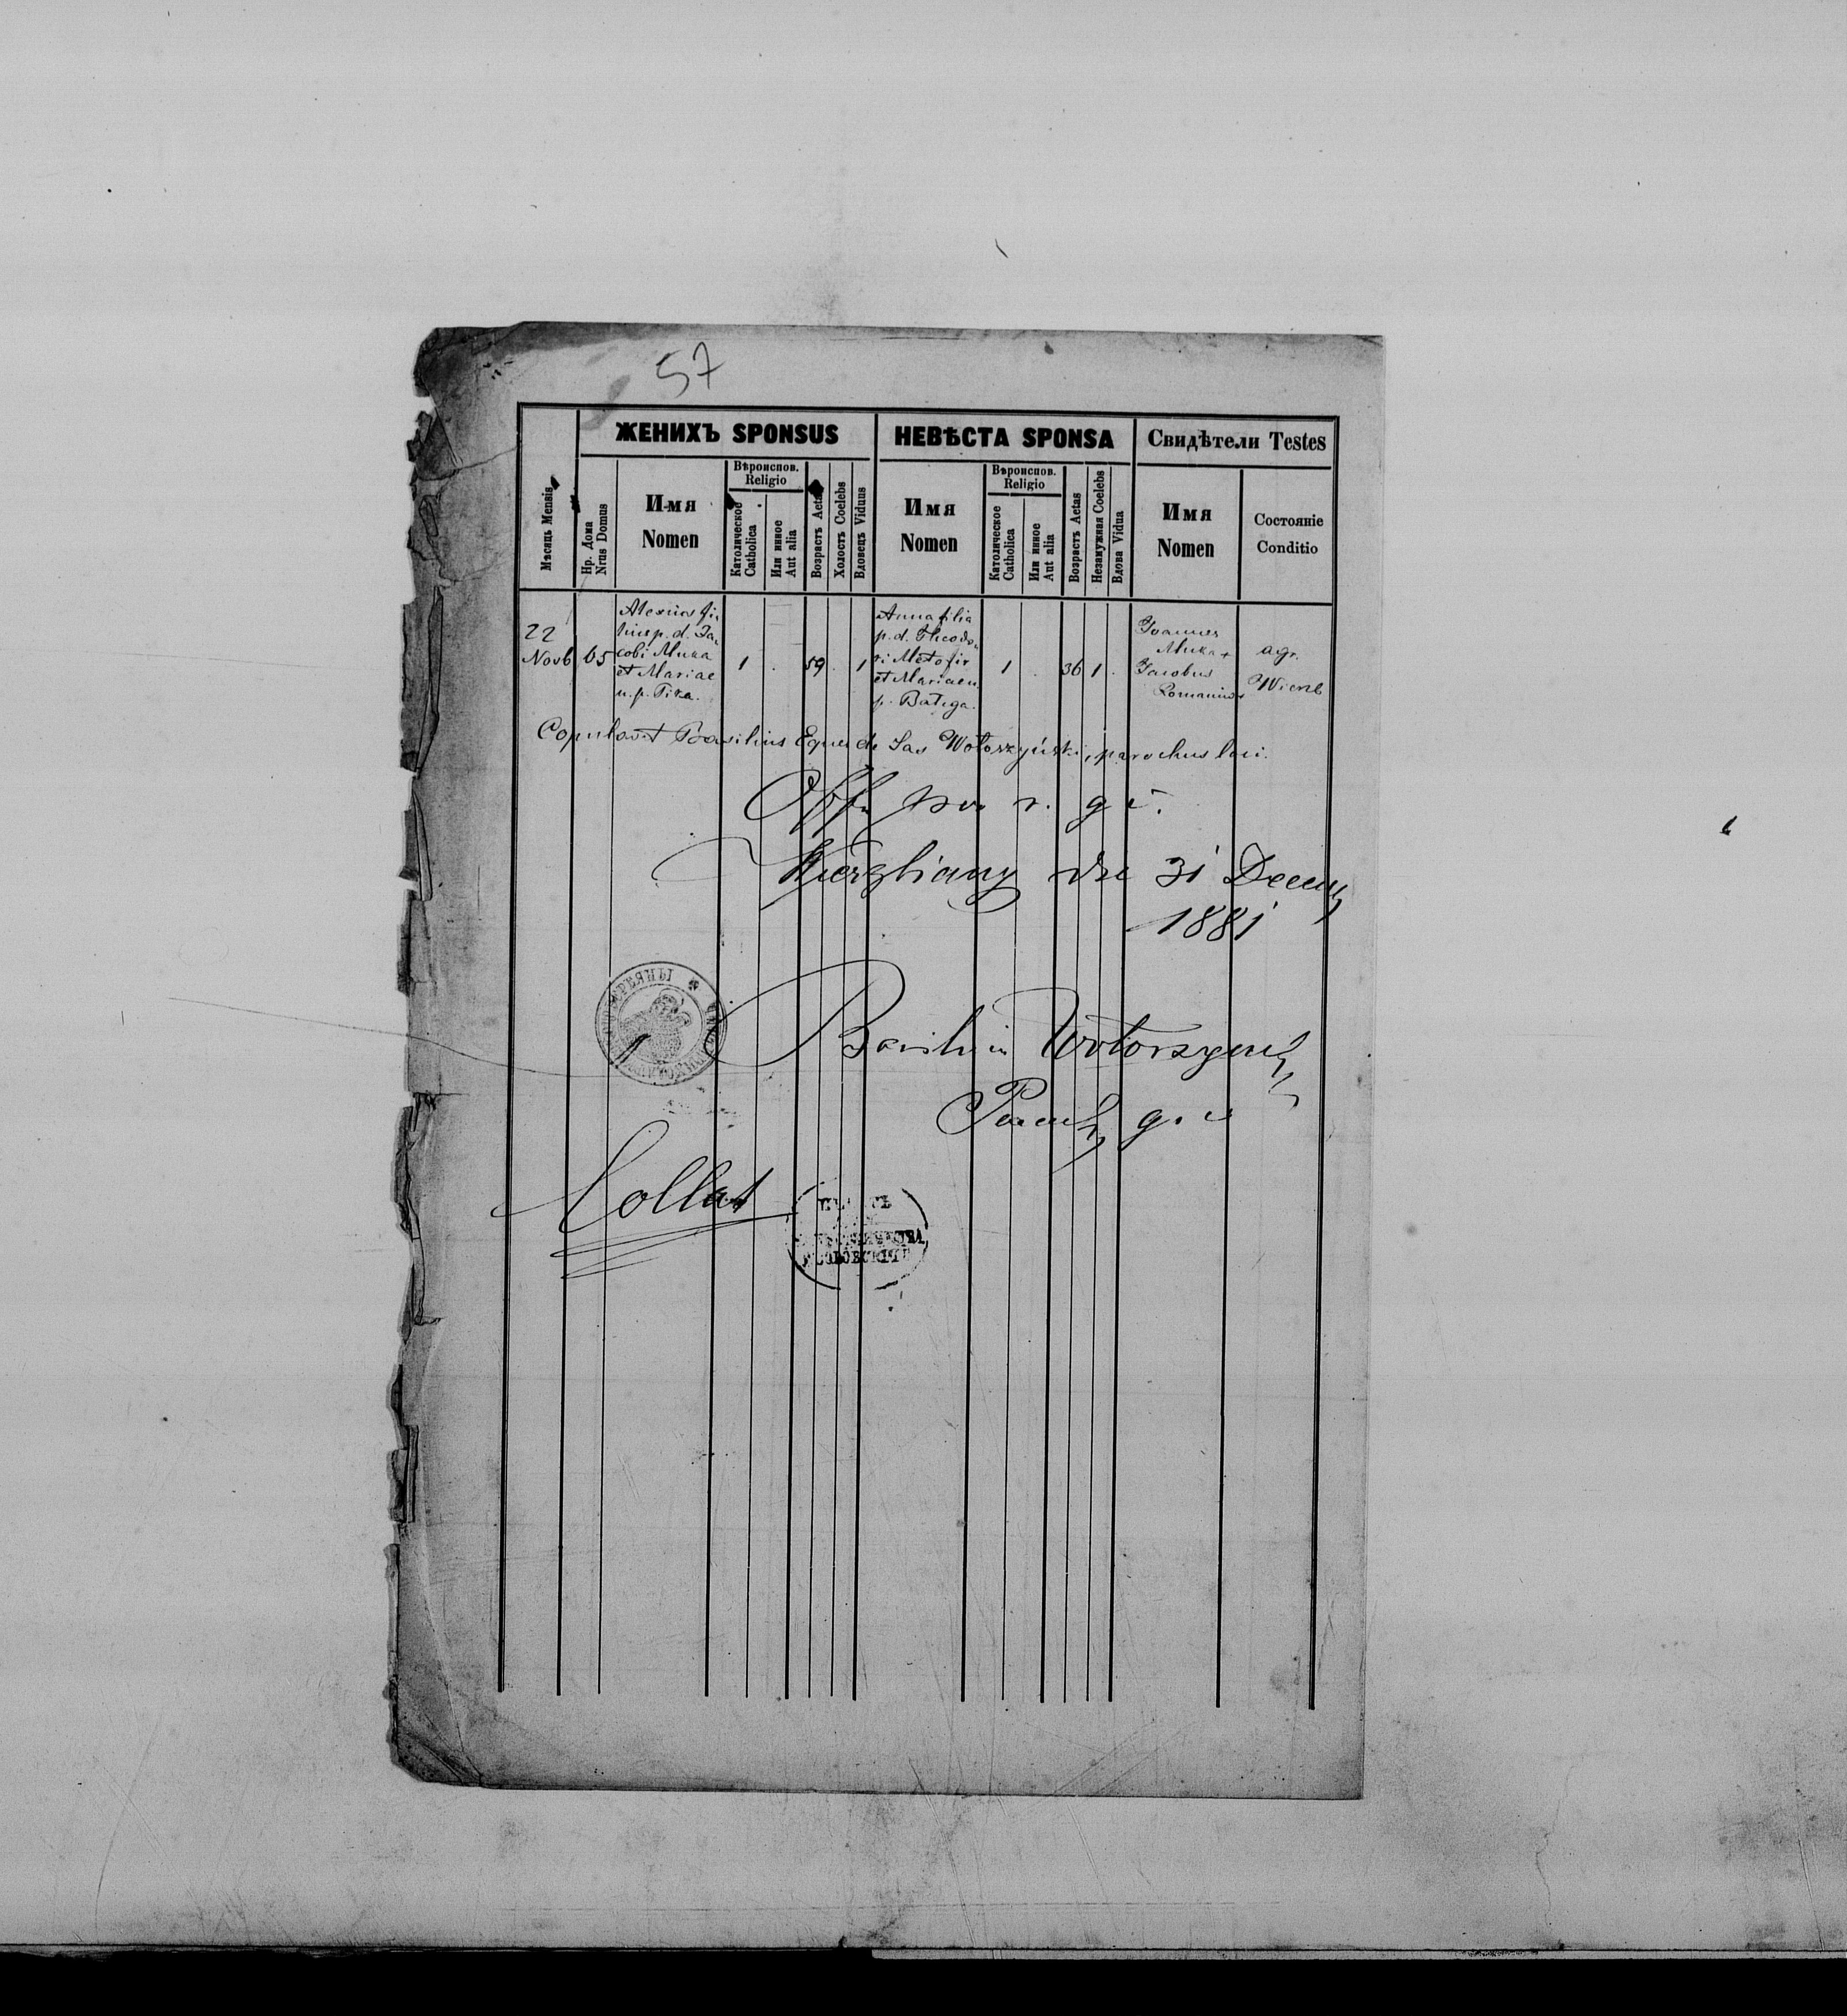 57
ЖЕНИХЪ SPONSUS
НЕВѢСТА SPONSA
Свидѣтели Testes
Мѣсяць Mensis
Нр. Дома
Nrus Domus
Имя
Nomen
Вѣроиспов.
Religio
Католическое
Catholica
Или инное
Aut alia
Возрастъ Aetas
Холостъ Coelebs
Вдовецъ Viduus
Имя
Nomen
Вѣроиспов.
Religio
Католическое
Catholica
Или инное
Aut alia
Возрастъ Aetas
Незамужная Coelebs
Вдова Vidua
Имя
Nomen
Состояніе
Conditio
22
Novb
65
Alexius fi,
lius p. d. Ja,
cobi Muka
et Mariae
n. p. Pika.
1 . 59 . 1
Anna filia
p. d. Theodo,
ri
et Mariae n.
p. Batyga.
1 . 36 1 .
Joannes
Muka +
Jacobus
Romaniw +
agr.
Wierzb
Copulavit Basilius Eques de Sas Wołoszyński, parochus loci.
r. g. c.
die 31 Decem
1881
Basilius Wołoszyn
g. c.
Collat